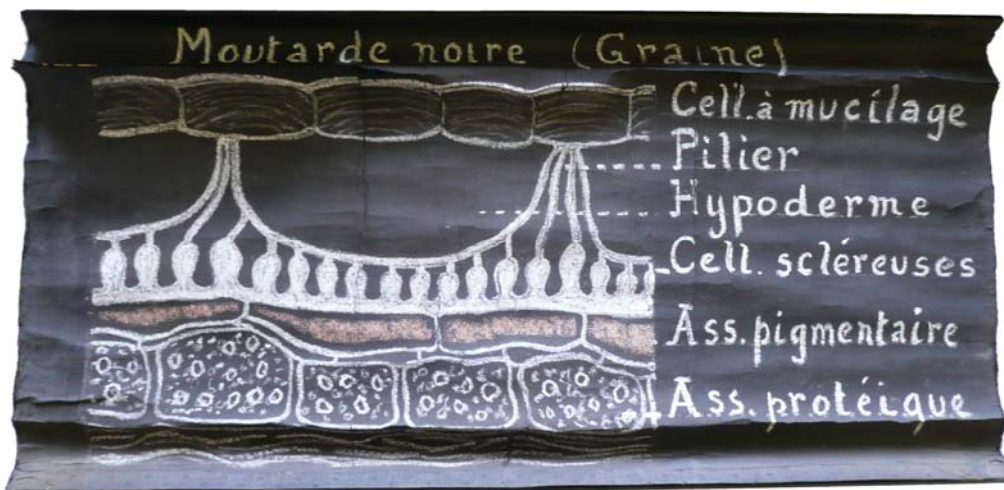 Moutarde noire (Graine)
Cell. à mucilage
Pilier
Hypoderme
Cell. scléreuses
Ass. pigmentaire
Ass. protéique